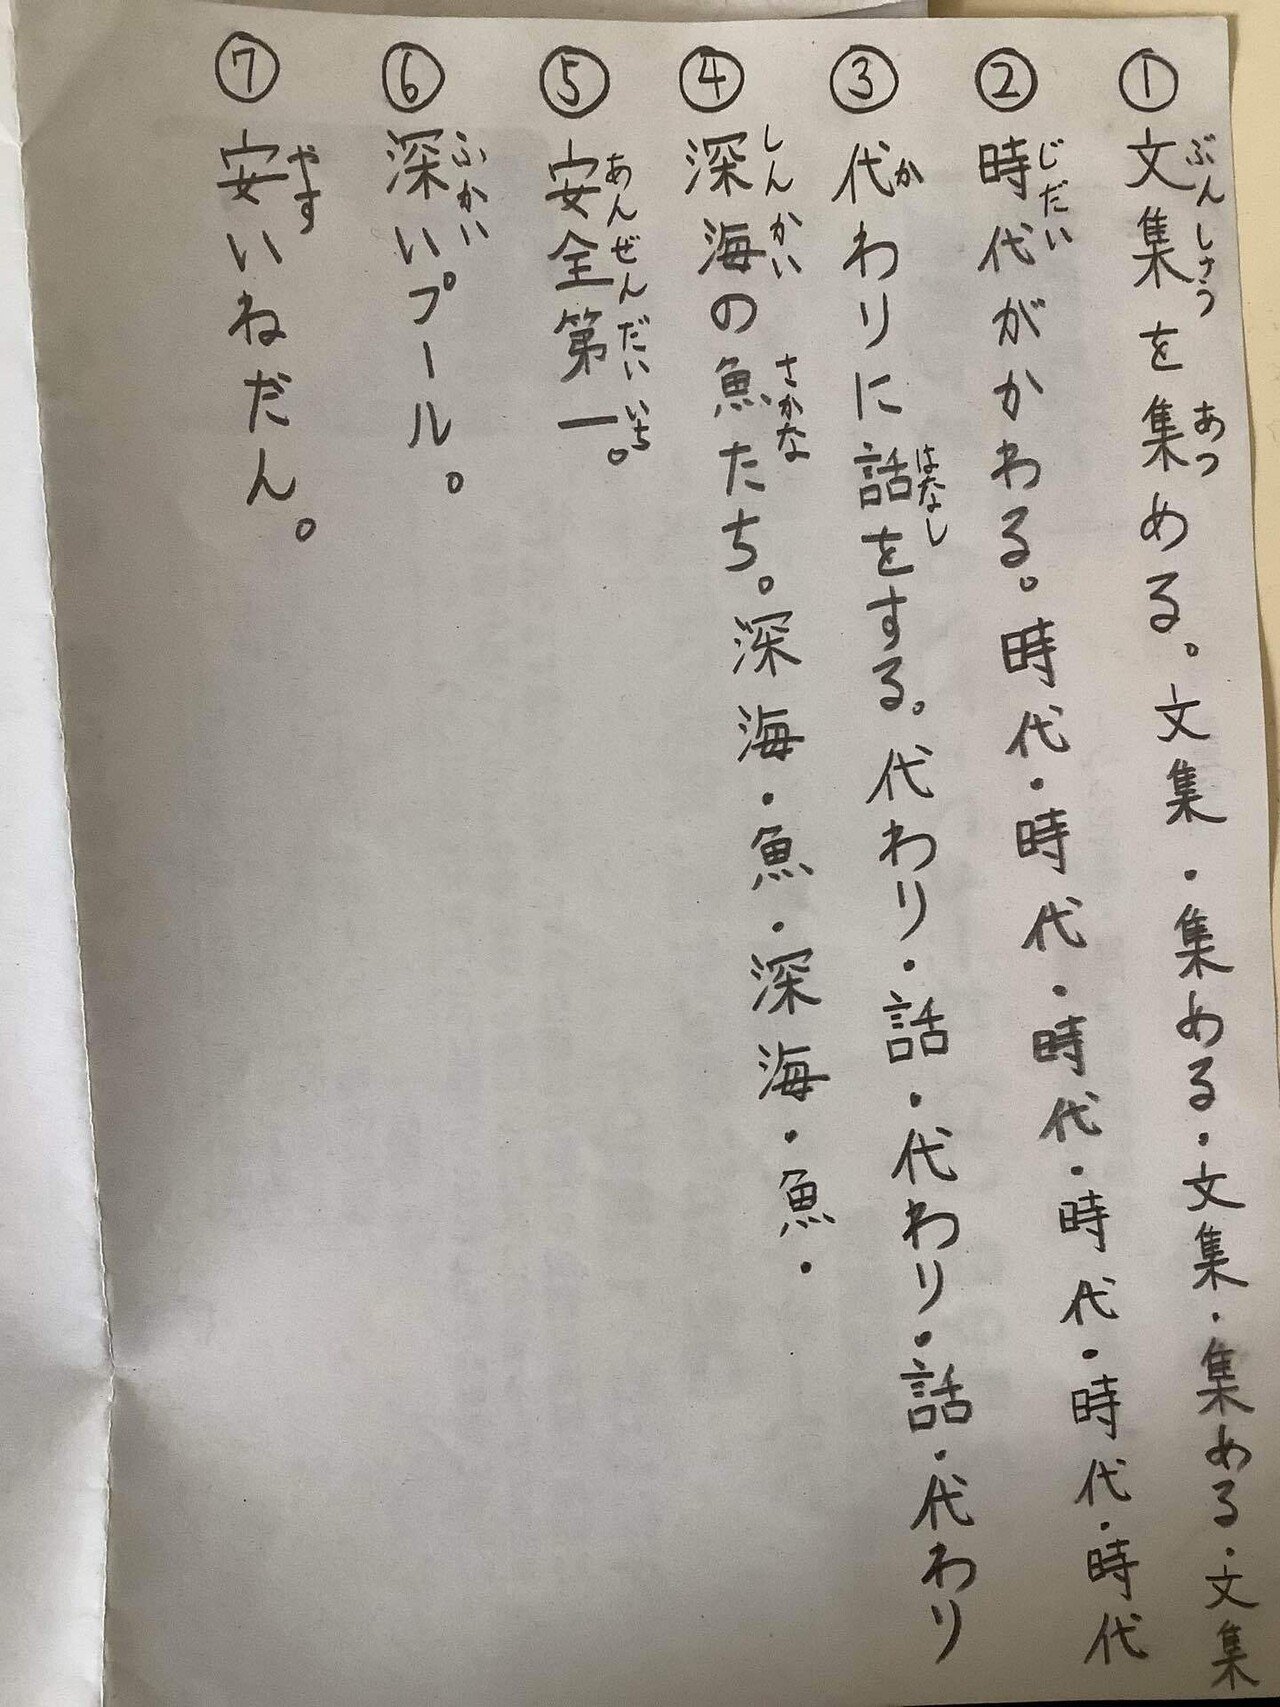 ① 文集を集める。文集・集める・文集・集める・文集
ぶんしゅう あつ
② 時代がかわる。時代・時代・時代・時代・時代・時代
じだい
③ 代わりに話をする。代わり・話・代わり・話・代わり
か はなし
④ 深海の魚たち。深海・魚・深海・魚・
しんかい さかな
⑤ 安全第一。
あんぜんだいいち
⑥ 深いプール。
ふかい
⑦ 安いねだん。
やす